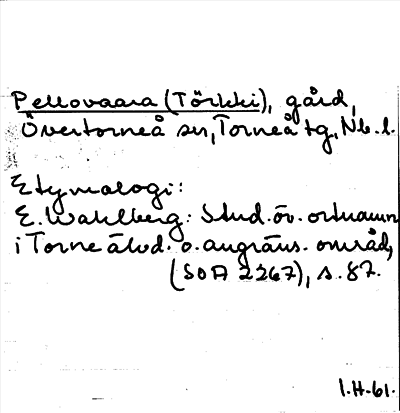 Pellovaara (Törkki), gård,
Övertorneå sn, Torneå tg, Nb. l.
Etymologi:
E. Wahlberg: Stud. öv. ortnamn
i Torne älvd. o. angräns. områd,
(SOA 2267), s. 87.
I.H-61.